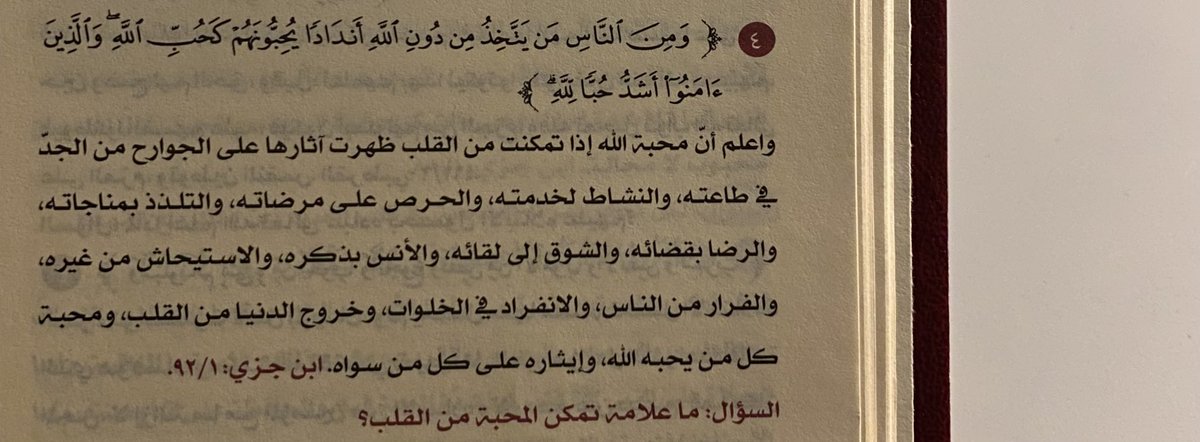 ٤ ﴿ وَمِنَ ٱلنَّاسِ مَن يَتَّخِذُ مِن دُونِ ٱللَّهِ أَندَادًا يُحِبُّونَهُمْ كَحُبِّ ٱللَّهِ ۖ وَٱلَّذِينَ
ءَامَنُوٓا۟ أَشَدُّ حُبًّا لِّلَّهِ ۗ ﴾
واعلم أنّ محبة الله إذا تمكنت من القلب ظهرت آثارها على الجوارح من الجدّ
في طاعته، والنشاط لخدمته، والحرص على مرضاته، والتلذذ بمناجاته،
والرضا بقضائه، والشوق إلى لقائه، والأنس بذكره، والاستيحاش من غيره،
والفرار من الناس، والانفراد في الخلوات، وخروج الدنيا من القلب، ومحبة
كل من يحبه الله، وإيثاره على كل من سواه. ابن جزي: ٩٢/١.
السؤال: ما علامة تمكن المحبة من القلب؟